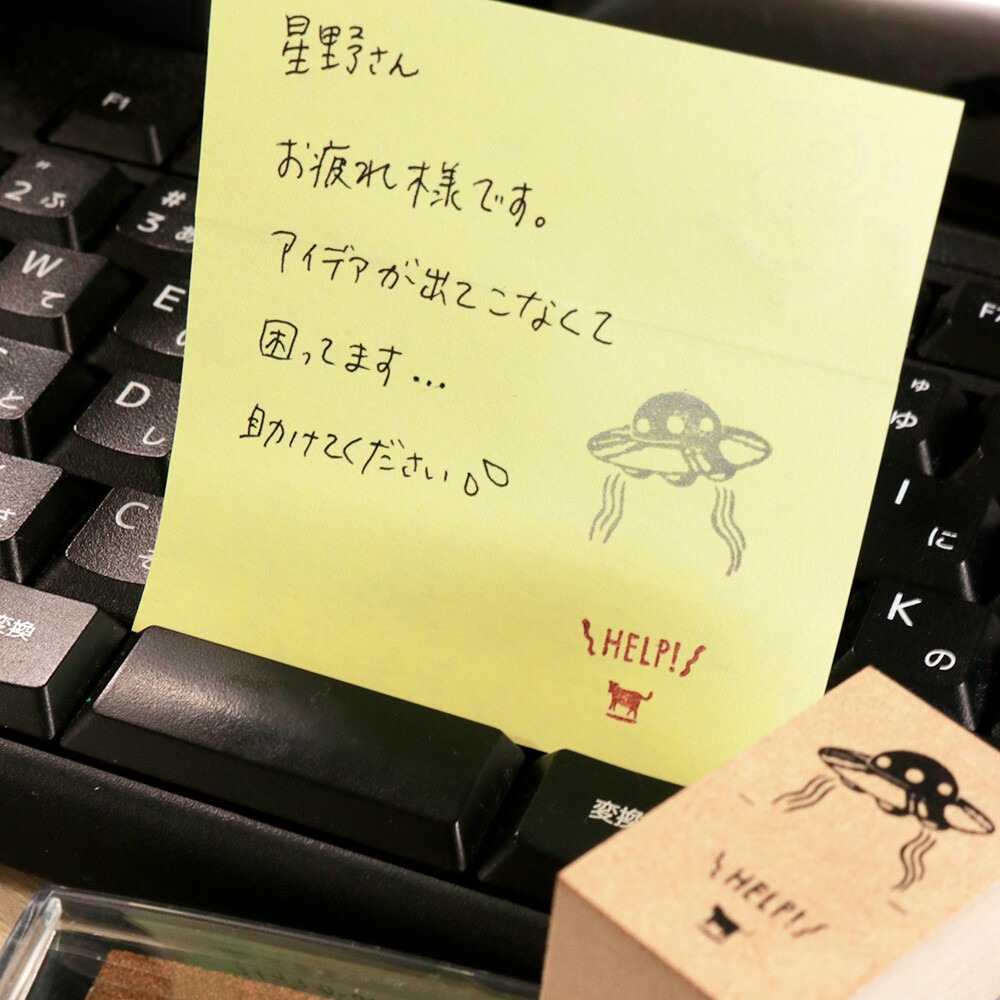 星野さん
お疲れ様です。
アイデアが出てこなくて
困ってます...
助けてください
HELP!
HELP!
F1
" 2 ふ
# 3 あ
W て
E
D し
C そ
変換
変換
ゅ ゆ
I に
K の
と
さ